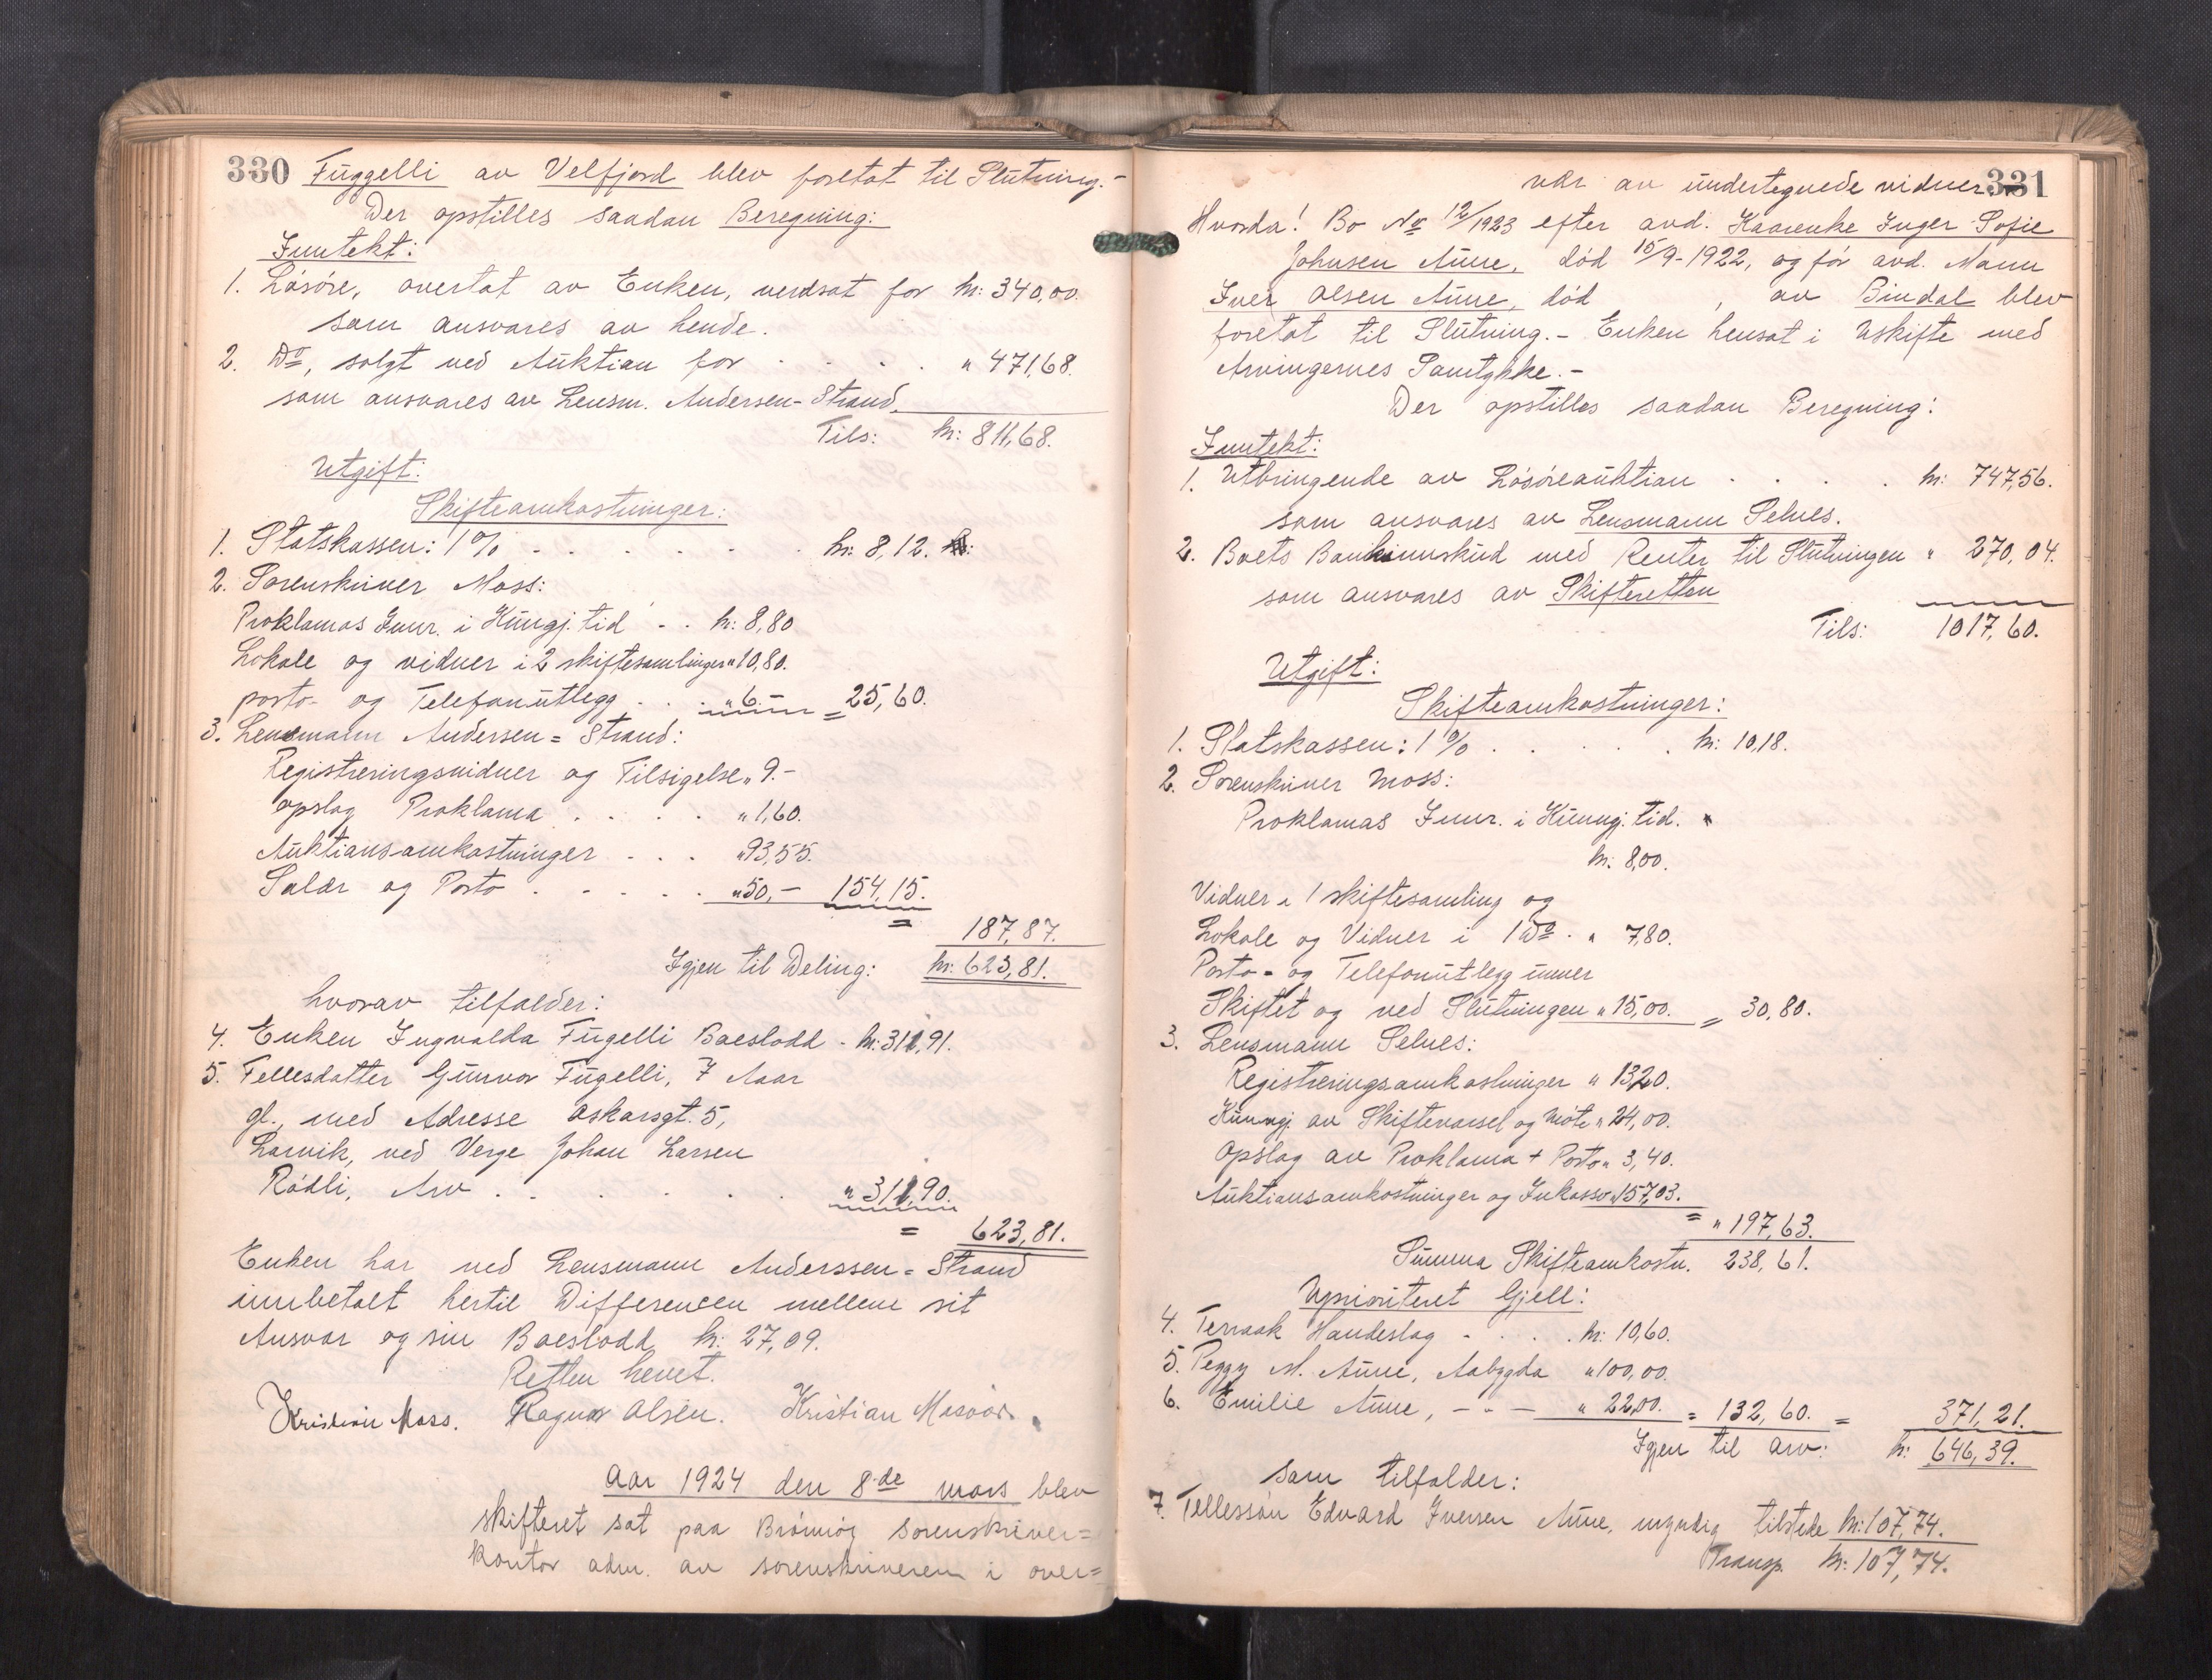 330 Fuggelli av Velfjord blev foretat til Slutning.-
Der opstilles saadan Beregning:
Inntekt:
1. Løsøre, overtat av Enken, verdsat for kr: 340,00.
som ansvares av hende.
2. Do, solgt ved Auktion for . . . . " 471,68.
som ansvares av Lensm. Andersen-Strand.
Tils: kr: 811,68.
Utgift:
Skifteomkostninger:
1. Statskassen: 1% . . . . . . kr: 8,12.
2. Sorenskriver Moss:
Proklamas Innr. i Kungj. tid . . kr: 8,80
Lokale og vidner i 2 skiftesamlinger " 10,80.
porto- og Telefonutlegg . . . " 6.- = 25,60.
3. Lensmann Andersen=Strand:
Registreringsvidner og Tilsigelse " 9.-
opslag Proklama . . . . " 1,60.
Auktionsomkostninger . . . " 93,55.
Salær og Porto . . . . . " 50,- 154,15.
= 187,87.
Igjen til Deling: kr: 623,81.
hvorav tilfalder:
4. Enken Ingvalda Fugelli Boeslodd - kr: 311,91.
5. Fellesdatter Gunvor Fugelli, 7 Aar
gl., med Adresse Oskarsgt. 5,
Larvik, ved Verge Johan Larsen
Rødli, Arv . . . . . . " 311,90.
= 623,81.
Enken har ved Lensmann Anderssen=Strand
innbetalt hertil Differencen mellem sit
Ansvar og sin Boeslodd kr: 27,09.
Retten hevet.
Kristian Moss. Ragnar Olsen. Kristian Mosvør.
Aar 1924 den 8de mars blev
skifteret sat paa Brønnøy sorenskriver=
kontor adm. av sorenskriveren i over=
331
vær av undertegnede vidner
Hvorda! Bo No 12/1923 efter avd. Kaarenke Inger Sofie
Johnsen Aune, død 15/9-1922, og før avd. Mann
Iver Olsen Aune, død , av Bindal blev
foretat til Slutning.- Enken hensat i Uskifte med
Arvingernes Samtykke.-
Der opstilles saadan Beregning:
Inntekt:
1. Utbringende av Løsøreauktion . . . . kr: 747,56.
som ansvares av Lensmann Selnes.
2. Boets Bankinnskud med Renter til Slutningen " 270,04.
som ansvares av Skifteretten
Tils: 1017,60.
Utgift:
Skifteomkostninger:
1. Statskassen: 1% . . . . . kr: 10,18.
2. Sorenskriver Moss:
Proklamas Innr. i Kunngj. tid.
kr: 8,00.
Vidner i 1 skiftesamling og
Lokale og Vidner i 1 Do . " 7,80.
Porto- og Telefonutlegg unner
Skiftet og ved Slutningen " 15,00. = 30,80.
3. Lensmann Selnes:
Registreringsomkostninger " 13,20.
Kunngj. av Skiftevarsel og møte " 24,00.
Opslag av Proklama + Porto " 3,40.
Auktionsomkostninger og Inkasso " 157,03.
= " 197,63.
Summa Skifteomkostn. 238,61.
Uprioriteret Gjell:
4. Terraak Handelslag - . . . kr: 10,60.
5. Peggy M. Aune, Aabygda " 100,00.
6. Emilie Aune, - " - " 22,00. = 132,60. = 371,21.
Igjen til Arv: kr: 646,39.
som tilfalder:
7. Fellessøn Edvard Iversen Aune, myndig tilstede kr: 107,74.
Transp. kr: 107,74.